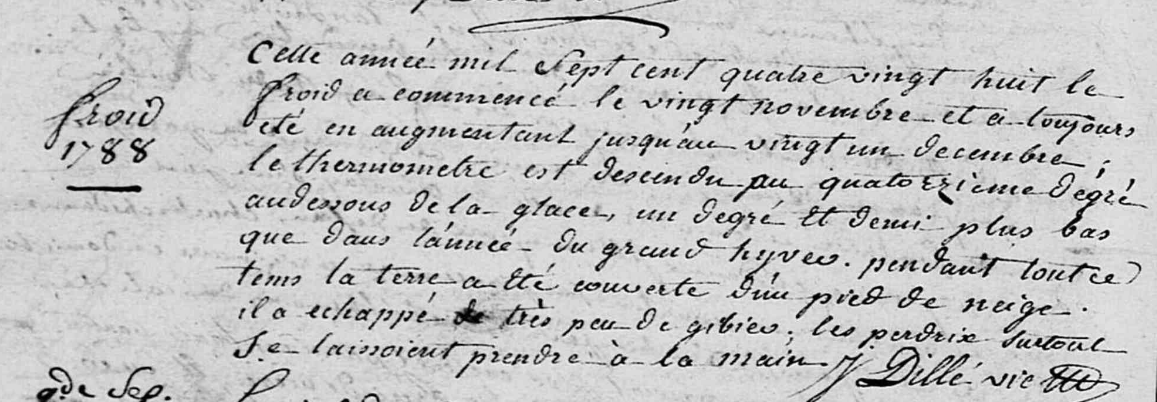 Cette année mil Sept cent quatre vingt huit le
froid
froid a commencé le vingt novembre et a toujours
1788
eté en augmentant jusqu'au vingt un decembre;
le thermometre est descendu au quatorzieme dégré
audessous de la glace, un degré et demi plus bas
que dans l'année du grand hyver. pendant tout ce
tems la terre a été couverte d'un pied de neige.
il a echappé de très peu de gibier. les perdrix surtout
Se laissoient prendre à la main. J Dillé vic